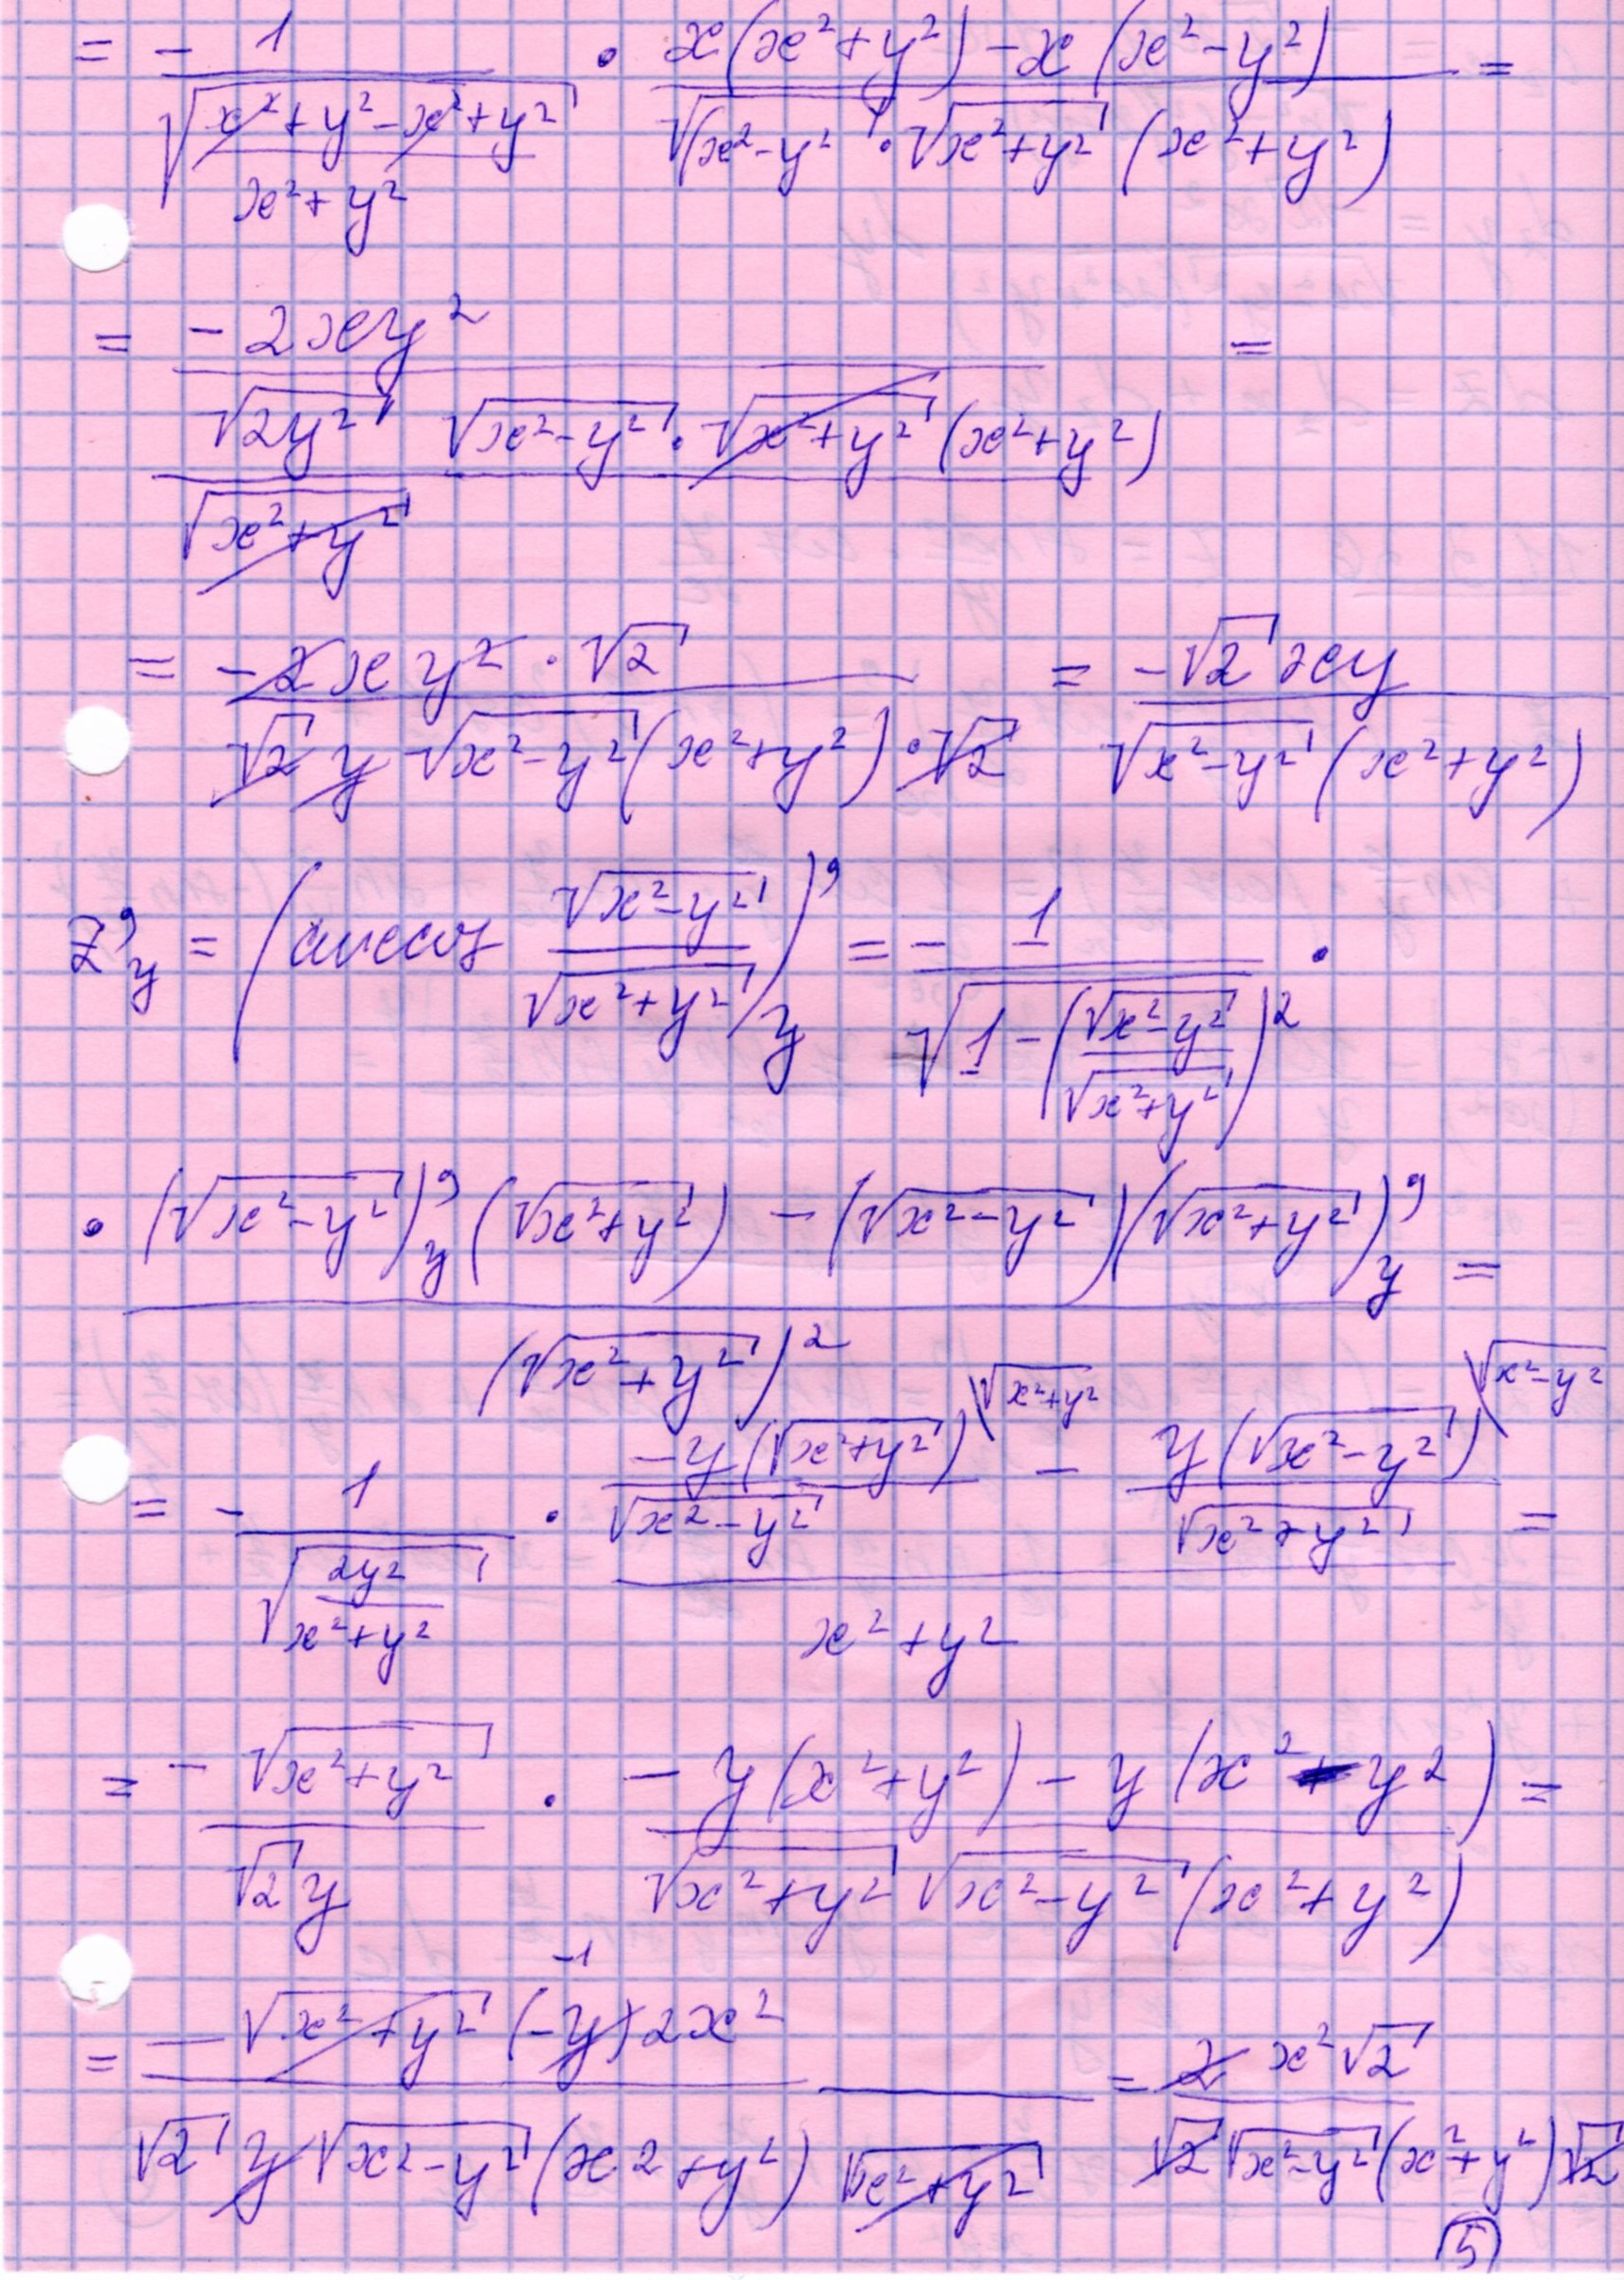 = - 1 / √((x² + y² - x² + y²) / (x² + y²)) · (x(x² + y²) - x(x² - y²)) / (√(x² - y²) · √(x² + y²) (x² + y²)) =
= -2xy² / ((√(2y²) / √(x² + y²)) √(x² - y²) · √(x² + y²) (x² + y²)) =
= (-2xy² · √2) / (√2 y √(x² - y²) (x² + y²) · √2) = (-√2 xy) / (√(x² - y²) (x² + y²))
Z'y = (arccos √(x² - y²) / √(x² + y²))'y = - 1 / √(1 - (√(x² - y²) / √(x² + y²))²) ·
· ((√(x² - y²))'y (√(x² + y²)) - (√(x² - y²))(√(x² + y²))'y) / (√(x² + y²))² =
= - 1 / √(2y² / (x² + y²)) · (-y(√(x² + y²)) / √(x² - y²) \√(x² + y²) - y(√(x² - y²)) / √(x² + y²) \√(x² - y²)) / (x² + y²) =
= - √(x² + y²) / (√2 y) · (-y(x² + y²) - y(x² - y²)) / (√(x² + y²) √(x² - y²) (x² + y²)) =
= (-√(x² + y²) (-y) 2x²) / (√2 y √(x² - y²) (x² + y²) √(x² + y²)) = (2 x² √2) / (√2 √(x² - y²) (x² + y²) √2)
-1
5